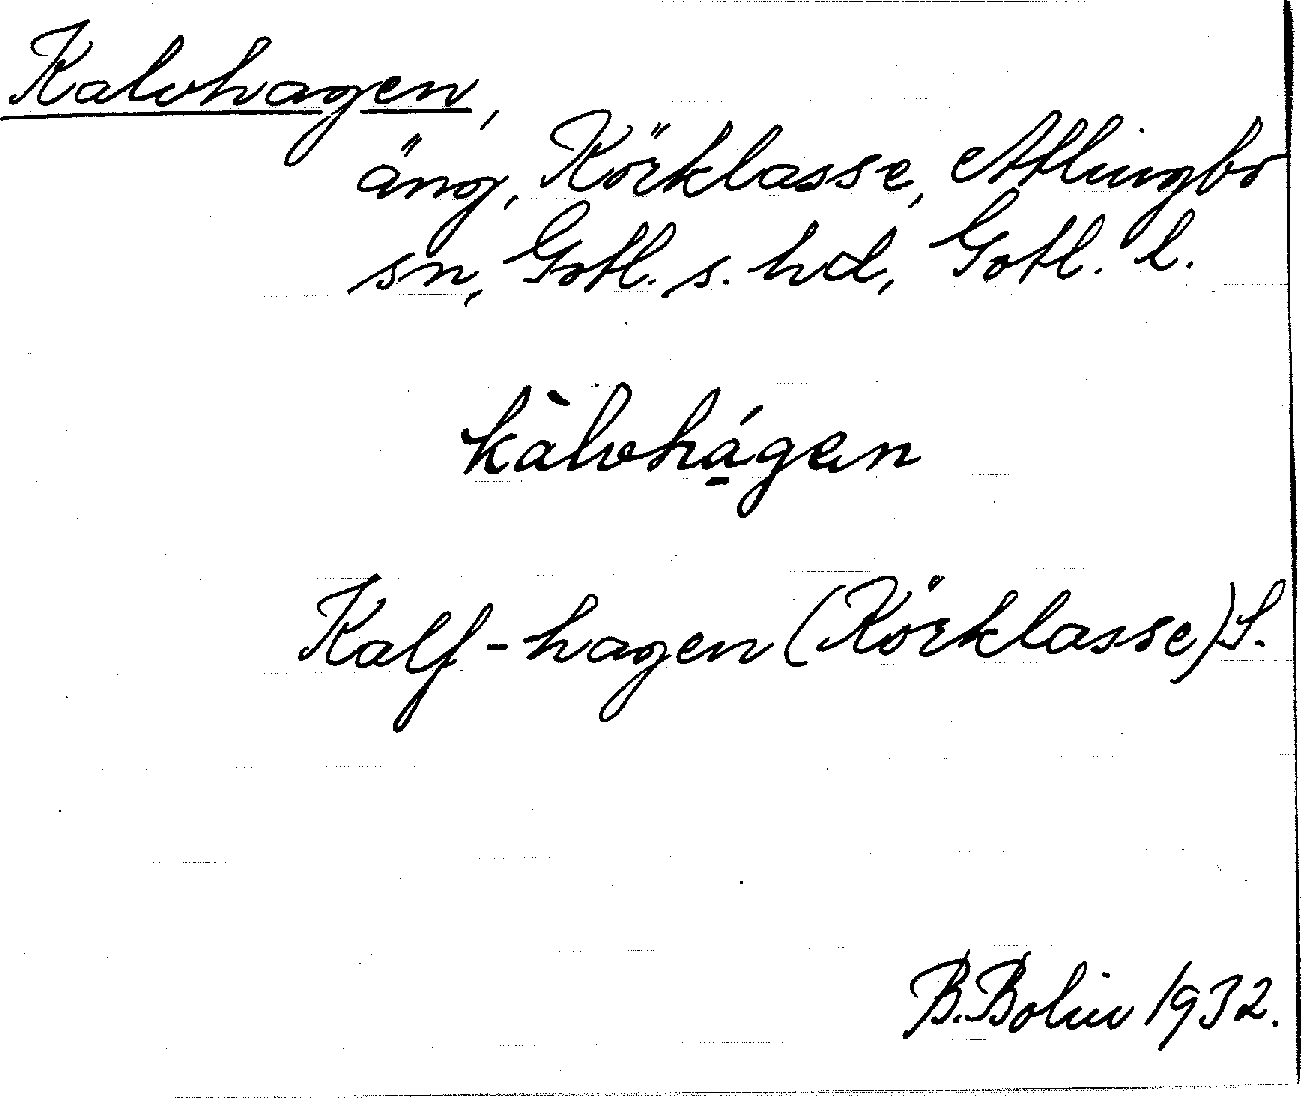 Kalvhagen,
äng, Körklasse, Atlingbo
sn, Gotl. s. hd, Gotl. l.
kàlvhá̱gen
Kalf-hagen (Körklasse) S.
B. Bolin 1932.